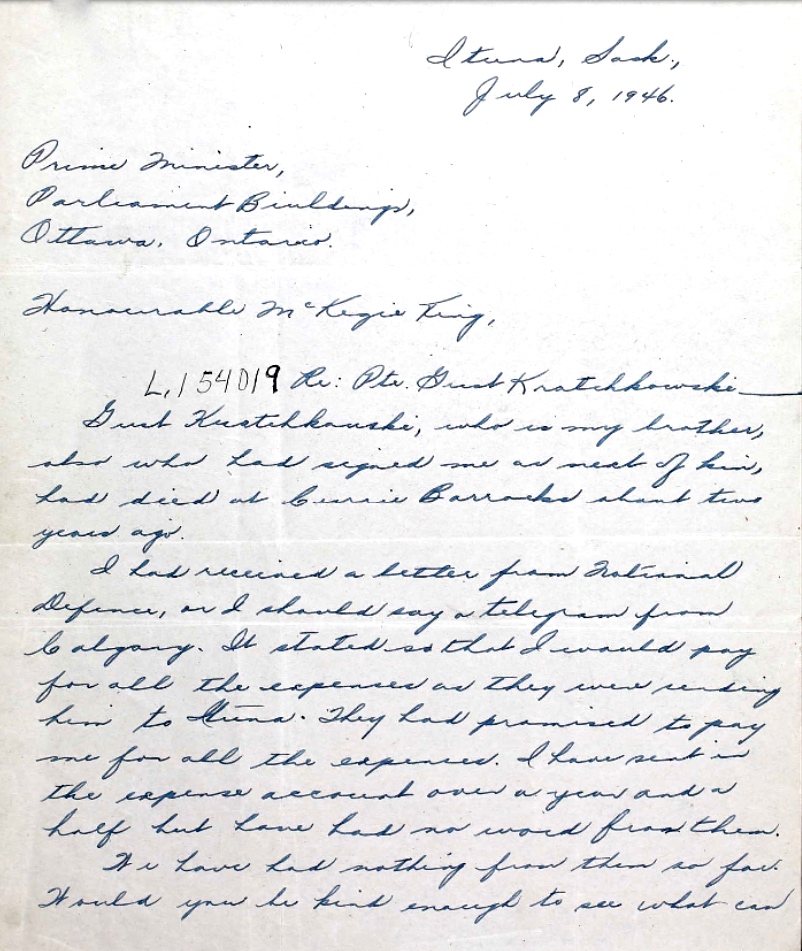 Ituna, Sask.,
July 8, 1946.
Prime Minister,
Parliament Biuldings,
Ottawa, Ontario.
Honourable Mc Kezie King,
L.154019 Re: Pte. Gust Kratchkowski
Gust Kratchkauski, who is my brother,
also who had signed me as next of kin,
had died at Currie Barracks about two
years ago.
I had received a letter from National
Defence, or I should say a telegram from
Calgary. It stated so that I would pay
for all the expenses as they were sending
him to Ituna. They had promised to pay
me for all the expences. I have sent in
the expense account over a year and a
half but have had no word from them.
We have had nothing from them so far.
Would you be kind enough to see what can